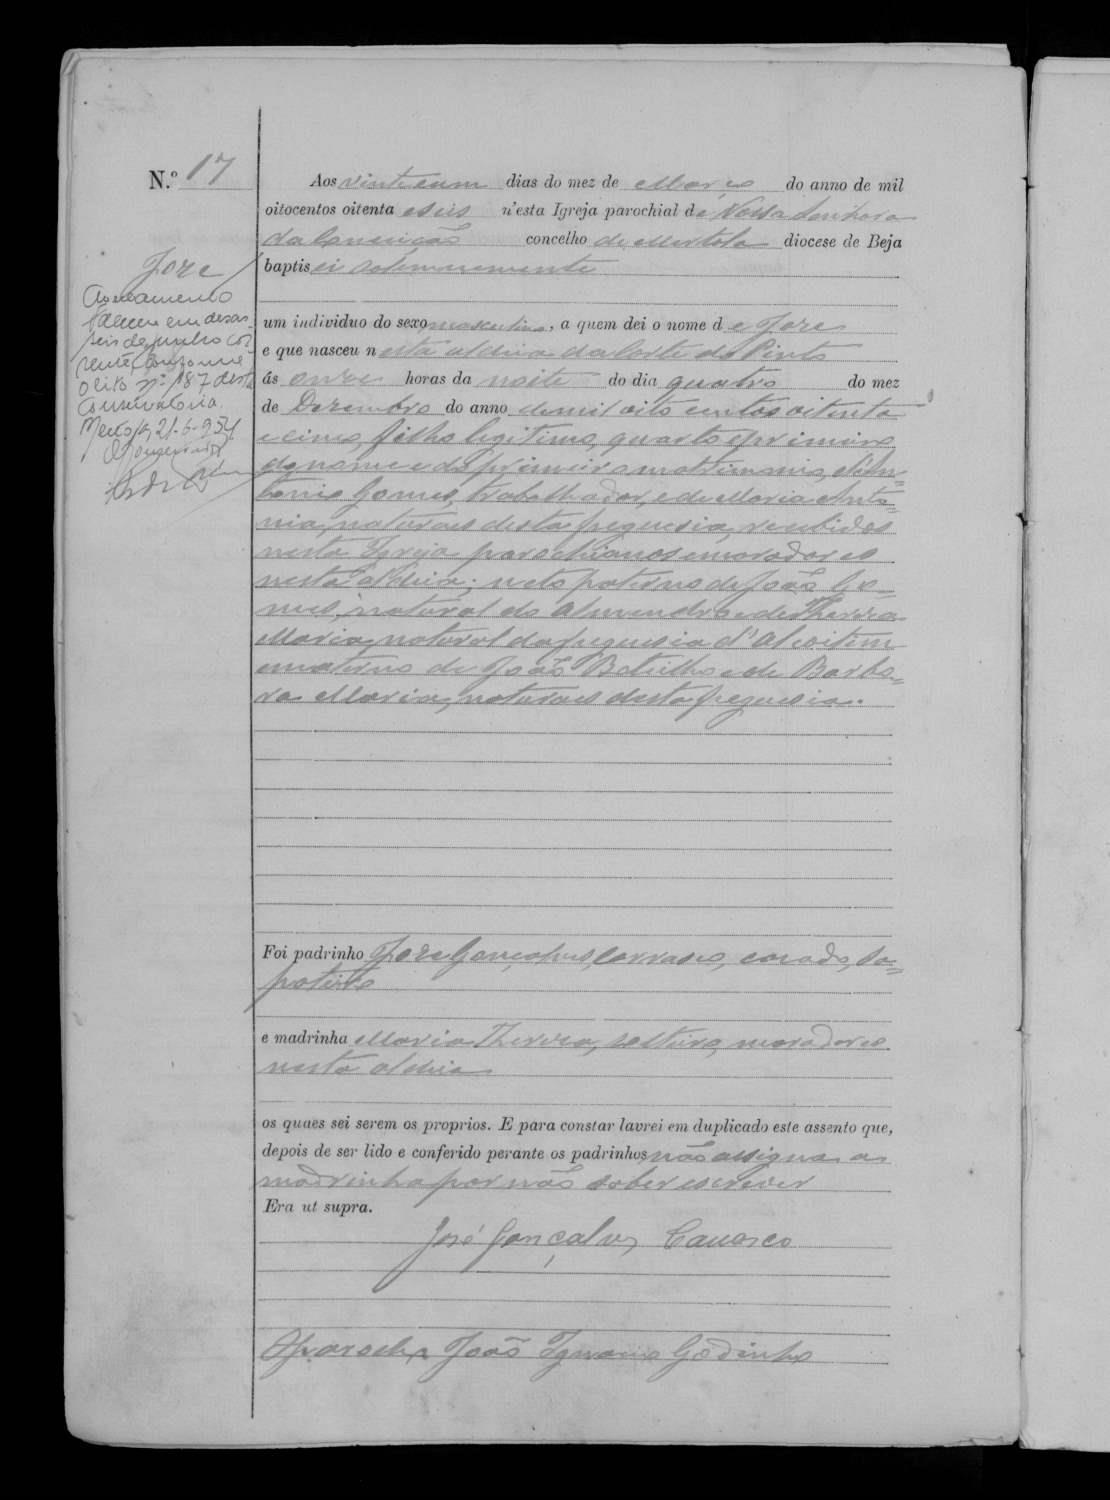 N.º 17
Aos vinte eum dias do mez de Março do anno de mil
oitocentos oitenta eseis n'esta Igreja parochial de Nossa Senhora
da Conceição concelho de Mertola diocese de Beja
baptisei solemnemente
um individuo do sexo masculino, a quem dei o nome de Jose
e que nasceu nesta aldeia da Corte do Pinto
ás onze horas da noite do dia quatro do mez
de Dezembro do anno demil oito centos oitenta
ecinco, filho legitimo, quarto eprimeiro
do nome e do primeiro matrimonio, de An=
tonio Gomes, trabalhador, e de Maria Anto=
nia, naturaes desta freguesia, recebidos
nesta Igreja parochianos emoradores
nesta aldeia; neto paterno de João Go=
mes, natural do Almendro e de Thereza
Maria, natural da freguesia d'Alcoitim
ematerno de João Botelho e de Barba=
ra Maria, naturaes desta freguesia.
Foi padrinho Jose Gonçalves Carrasco, casado, sa=
pateiro
e madrinha Maria Thereza, solteira, moradores
nesta aldeia
os quaes sei serem os proprios. E para constar lavrei em duplicado este assento que,
depois de ser lido e conferido perante os padrinhos, não assigna a
madrinha por não saber escrever
Era ut supra.
José Gonçalves Carrasco
O parocho João Ignacio Godinho
Jose
Averbamento
Faleceu em dezas-
seis de junho cor
rente, conforme
o n.º 187 desta
Conservatoria.
21-6-954
O Conservador